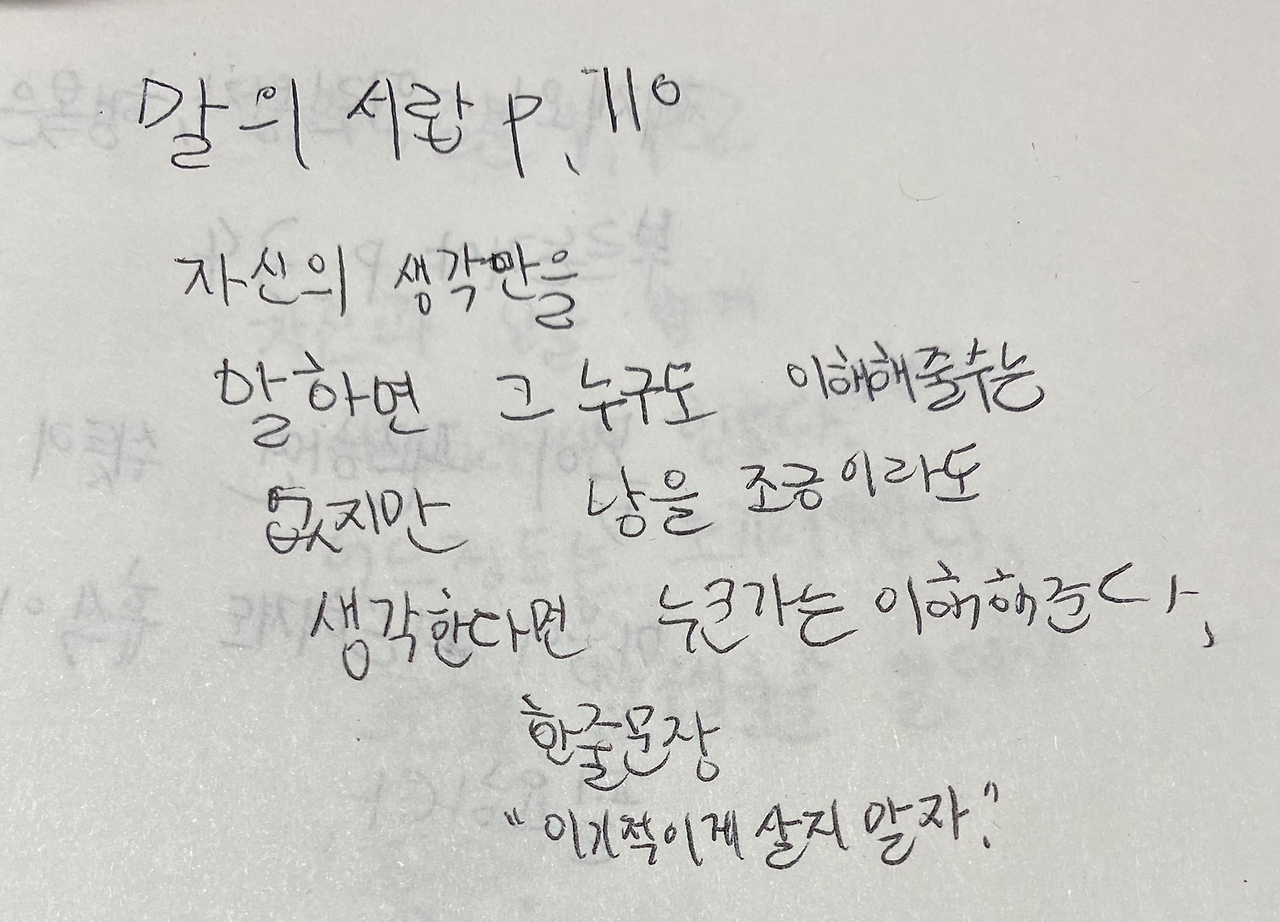 말의 서랍 p. 110
자신의 생각만을
말하면 그 누구도 이해해줄수는
없지만 남을 조금이라도
생각한다면 누군가는 이해해준다.
한줄문장
"이기적이게 살지 말자."